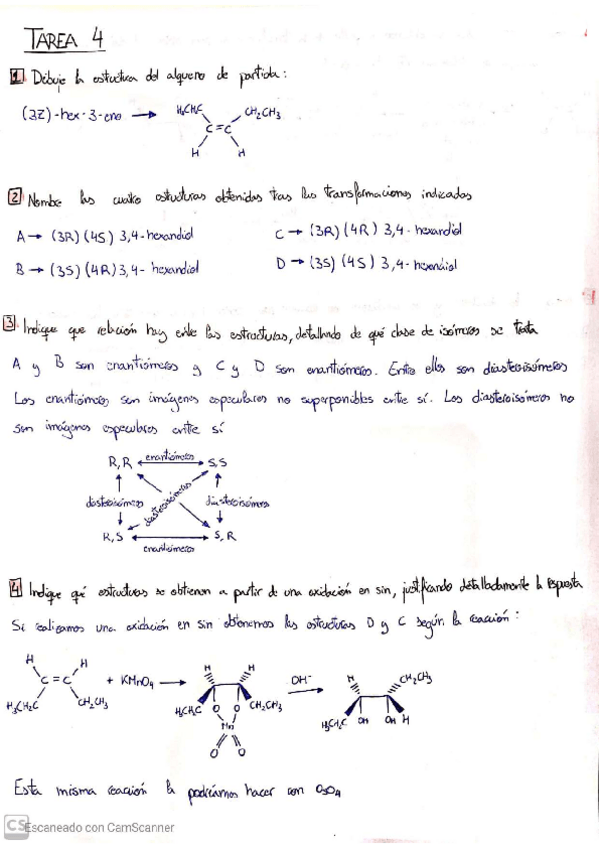 TAREA 4
1 Dibuje la estructura del alqueno de partida:
(3Z)-hex-3-eno → H₃CH₂C CH₂CH₃
C=C
H H
2 Nombe las cuatro estructuras obtenidas tras las transformaciones indicadas
A → (3R)(4S) 3,4-hexandiol C → (3R)(4R) 3,4-hexandiol
B → (3S)(4R) 3,4-hexandiol D → (3S)(4S) 3,4-hexandiol
3 Indique que relación hay entre las estructuras, detallando de qué clase de isómeros se trata
A y B son enantiómeros y C y D son enantiómeros. Entre ellos son diasteroisómeros
Los enantiómeros son imágenes especulares no superponibles entre sí. Los diasteroisómeros no
son imágenes especulares entre sí
R,R enantiómeros S,S
diasteroisómeros diasteroisómeros diasteroisómeros
R,S enantiómeros S,R
4 Indique qué estructuras se obtienen a partir de una oxidación en sin, justificando detalladamente la respuesta
Si realizamos una oxidación en sin obtenemos las estructuras D y C según la reacción:
H H H H H CH₂CH₃
C=C + KMnO₄ → OH⁻ →
H₃CH₂C CH₂CH₃ H₃CH₂C O O CH₂CH₃ H₃CH₂C OH OH H
Mn
O O
Esta misma reacción la podríamos hacer con OsO₄
CS Escaneado con CamScanner